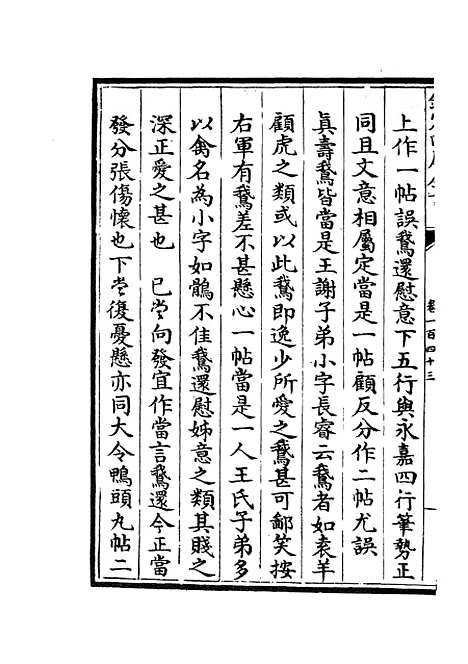 卷一百四十三
上作一帖誤鵞還慰意下五行與永嘉四行筆勢正
同且文意相屬定當是一帖顧反分作二帖尤誤
真壽鵞皆當是王謝子弟小字長睿云鵞者如袁羊
顧虎之類或以此鵞即逸少所愛之鵞甚可鄙笑按
右軍有鵞差不甚懸心一帖當是一人王氏子弟多
以禽名為小字如鶻不佳鵞還慰姊意之類其賤之
深正愛之甚也　已尝向發宜作當言鵞還今正當
發分張傷懷也下尝復憂懸亦同大令鴨頭丸帖二